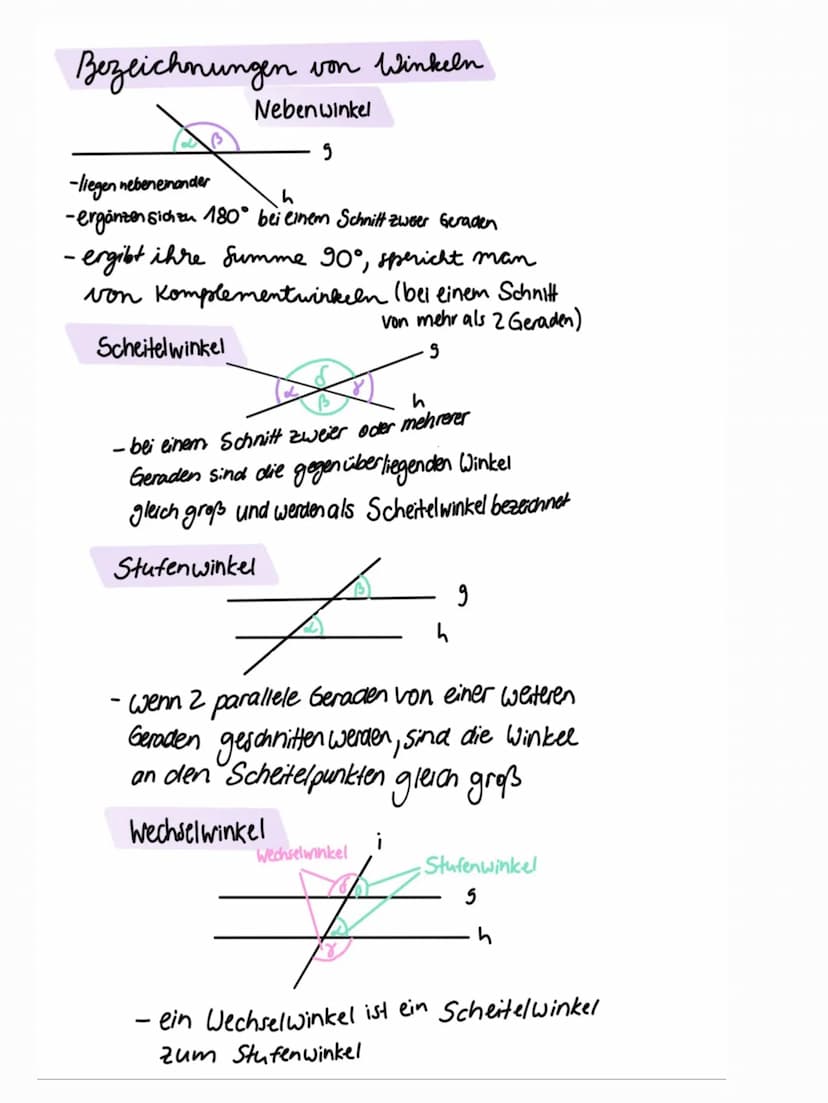 Bezeichnungen von Winkeln
Nebenwinkel
α β
g
-liegen nebeneinander
h
-ergänzen sich zu 180° bei einem Schnitt zweier Geraden
- ergibt ihre Summe 90°, spericht man
von Komplementwinkeln (bei einem Schnitt
von mehr als 2 Geraden)
Scheitelwinkel
g
δ
α γ
β
h
- bei einem Schnitt zweier oder mehrerer
Geraden sind die gegenüberliegenden Winkel
gleich groß und werden als Scheitelwinkel bezeichnet
Stufenwinkel
β
g
α
h
- wenn 2 parallele Geraden von einer weiteren
Geraden geschnitten werden, sind die Winkel
an den Scheitelpunkten gleich groß
Wechselwinkel
i
Wechselwinkel
Stufenwinkel
δ
g
α
h
γ
- ein Wechselwinkel ist ein Scheitelwinkel
zum Stufenwinkel